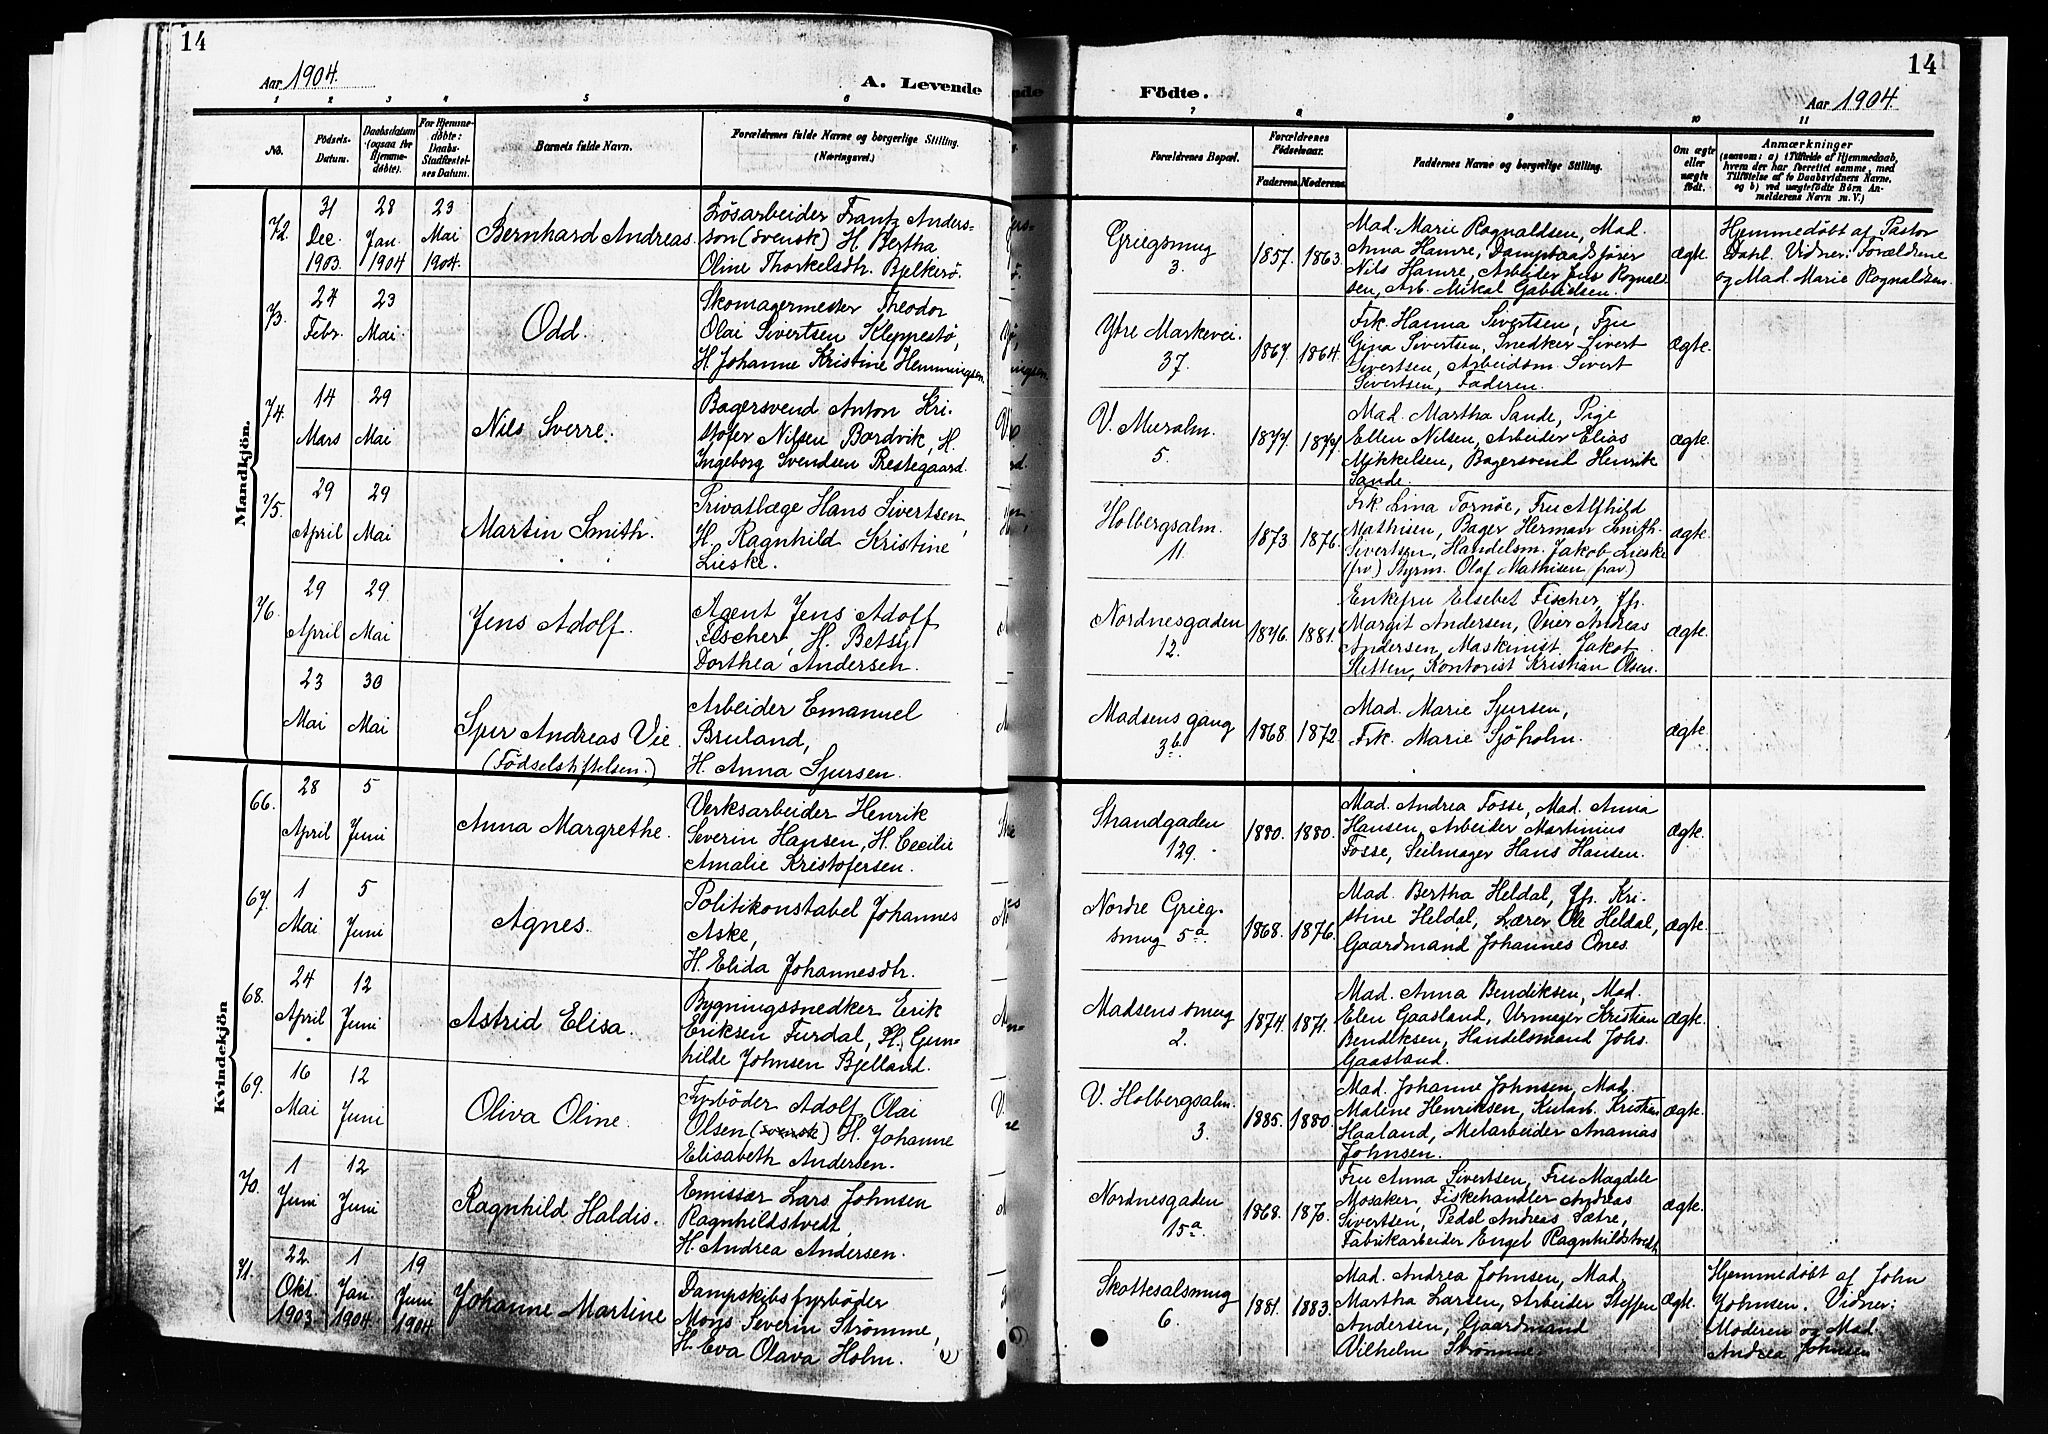 14
Aar 1904.
A. Levende
1 2 3 4 5 6
No.
Födsels-
Datum.
Daabsdatum
(ogsaa for
Hjemme-
döbte).
For Hjemme-
döbte:
Daabs-
Stadfæstel-
ses Datum.
Barnets fulde Navn.
Forældrenes fulde Navne og borgerlige Stilling.
(Næringsvei.)
Mandkjön.
72.
31
Dec.
1903
28
Jan.
1904
23
Mai
1904.
Bernhard Andreas.
Løsarbeider Frantz Anders-
son (svensk) H. Bertha
Oline Thorkelsdtr. Bjelkerö.
73.
27
Febr.
23
Mai.
Odd.
Skomagermester Theodor
Olai Sivertsen Kleppestö,
H. Johanne Kristine Hemmingsen.
74.
14
Mars
29
Mai
Nils Sverre.
Bagersvend Anton Kri-
stofer Nilsen Bordvik, H.
Ingeborg Svendsen Prestegaard.
75.
29
April
29
Mai
Martin Smith.
Privatlæge Hans Sivertsen,
H. Ragnhild Kristine
Lieske.
76.
29
April
29.
Mai
Jens Adolf.
Agent Jens Adolf
Fischer, H. Betsy
Dorthea Andersen.
23
Mai
30
Mai
Sjur Andreas Vie.
(Födselstiftelsen.)
Arbeider Emanuel
Bruland,
H. Anna Sjursen.
Kvindekjön
66.
28
April
5
Juni
Anna Margrethe.
Verksarbeider Henrik
Severin Hansen, H. Cecilie
Amalie Kristofersen.
67.
1
Mai
5
Juni
Agnes.
Politikonstabel Johannes
Aske,
H. Elida Johannesdtr.
68.
24
April
12
Juni
Astrid Elisa.
Bygningssnedker Erik
Eriksen Furdal, H. Gun-
hilde Johnsen Bjelland.
69.
16
Mai
12
Juni
Oliva Oline.
Fyrböder Adolf Olai
Olsen (svensk) H. Johanne
Elisabeth Andersen.
70.
1
Juni
12
Juni
Ragnhild Haldis.
Emissær Lars Johnsen
Ragnhildstvedt,
H. Andrea Andersen.
71.
22.
Okt.
1903.
1
Jan.
1904.
19
Juni
1904
Johanne Martine
Dampskibsfyrböder
Mons Severin Strömme,
H. Eva Olava Holm.
14
Födte.
Aar 1904.
7 8 9 10 11
Forældrenes Bopæl.
Forældrenes
Födselsaar.
Faderens. Moderens.
Faddernes Navne og borgerlige Stilling.
Om ægte
eller
uægte
födt.
Anmærkninger
(saasom: a) i Tilfælde af Hjemmedaab,
hvem der har forrettet samme, med
Tilföielse af to Daabsvidners Navne.
og b) ved uægtefödte Börn An-
melderens Navn m. V.)
Griegsmug
3.
1857. 1863.
Mad. Marie Rognaldsen, Mad.
Anna Hamre, Dampbaadsförer
Nils Hamre, Arbeider Jens Rognald-
sen, Arb. Mikal Gabrielsen.
ægte.
Hjemmedöbt af Pastor
Dahl. Vidner: Forældrene
og Mad. Marie Rognaldsen.
Ytre Markevei.
37.
1867. 1864.
Frk. Hanna Sivertsen, Fru
Gina Sivertsen, Snedker Sivert
Sivertsen, Arbeidsm. Sivert
Sivertsen, Faderen.
ægte.
V. Muralm.
5.
1877. 1877.
Mad. Martha Sande, Pige
Ellen Nilsen, Arbeider Elias
Mikkelsen, Bagersvend Henrik
Sande.
ægte.
Holbergsalm.
11.
1873 1876.
Frk. Lina Tornöe, Fru Alfhild
Mathisen, Bager Herman Smith-
Sivertsen, Handelsm. Jakob Lieske
(frv) Styrm. Olaf Mathisen frav.)
ægte.
Nordnesgaden
12.
1876. 1881.
Enkefru Elsebet Fischer, Jfr.
Margit Andersen, Vrier Andreas
Andersen, Maskinist Jakob
Sletten, Kontorist Kristian Olsen.
ægte.
Madsens gang
3b.
1868 1872.
Mad. Marie Sjursen,
Frk. Marie Sjöholm.
ægte.
Strandgaden
129.
1880. 1880.
Mad. Andrea Fosse, Mad. Anna
Hansen, Arbeider Martinius
Fosse, Seilmager Hans Hansen.
ægte.
Nordre Grieg-
smug 5a.
1868. 1876.
Mad. Bertha Heldal, Jfr. Kri-
stine Heldal, Lærer Ole Heldal,
Gaardmand Johannes Ones.
ægte.
Madsens smug
2.
1874. 1871.
Mad. Anna Bendiksen, Mad.
Elen Gaasland, Urmager Kristian
Bendiksen, Handelsmand Johs.
Gaasland.
ægte.
V. Holbergsalm.
3.
1885. 1880.
Mad. Johanne Johnsen, Mad.
Malene Henriksen, Kularb. Kristian
Haaland, Melarbeider Ananias
Johnsen.
ægte.
Nordnesgaden
15a.
1868. 1870.
Fru Anna Sivertsen, Fru Magdele
Mosaker, Fiskehandler Andreas
Sivertsen, Pedel Andreas Sætre,
Fabrikarbeider Engel Ragnhildstvedt,
ægte.
Skottesalsmug
6.
1881. 1883.
Mad. Andrea Johnsen, Mad.
Martha Larsen, Arbeider Steffen
Andersen, Gaardmand
Vilhelm Strömme.
ægte.
Hjemmedöbt af John
Johnsen. Vidner:
Moderen og Mad.
Andrea Johnsen.